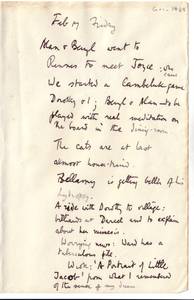 Feb 19 Friday
Alan & Beryl went to
Rennes to meet Joyce: who
came
We started a Camberluk game
Dorothy & I; Beryl & Alan to be
played with real meditation on
the board in the dining-room
The cats are at last
almost house-trained.
Bellamy is getting better of his
A ride with Dorothy to village:
billiards at Dared and to explain
about his
Worrying news: Ward has a
tuberculous
Work: 'A Portrait of Little
Jacob' from what I remembered
of the verse of my dream